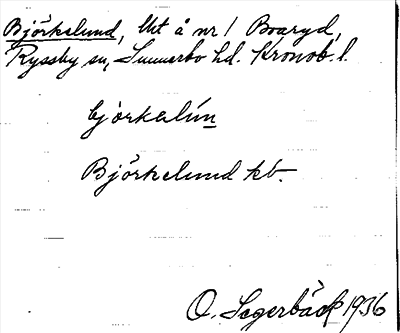 Björkelund, lht å nr 1 Boaryd,
Ryssby sn, Sunnerbo hd. Kronob. l.
bjòrkalún
Björkelund kb.
O. Segerbäck 1936